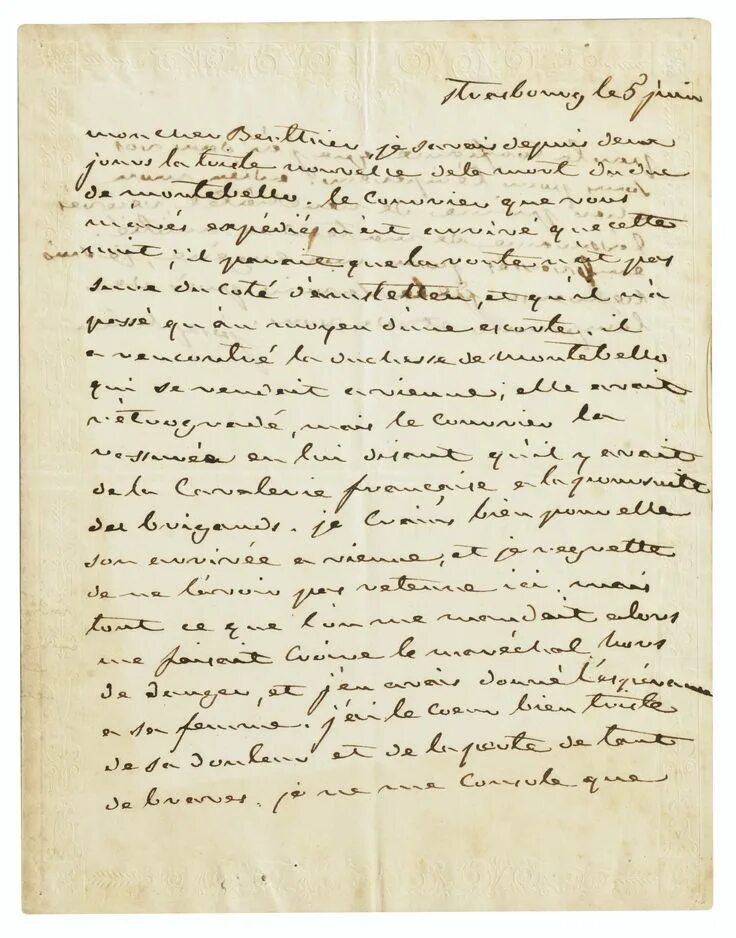 strasbourg le 5 juin
mon cher Berthier, je savais depuis deux
jours la triste nouvelle de la mort du duc
de montebello. le Courrier que vous
m'avés expédié n'est arrivé que cette
nuit; il parait que la route n'est pas
sure du coté d'amstetten, et qu'il n'a
passé qu'au moyen d'une escorte. il
a rencontré la duchesse de montebello
qui se rendait a vienne; elle avait
rétrogradé, mais le Courrier la
rassurée en lui disant qu'il y avait
de la Cavalerie française a la poursuite
des brigands. je Crains bien pour elle
son arrivée a vienne, et je regrette
de ne l'avoir pas retenue ici. mais
tout ce que l'on me mandait alors
me faisait Croire le maréchal hors
de danger, et j'en avais donné l'espérance
a sa femme. j'ai le Coeur bien triste
de sa douleur et de la perte de tant
de braves. je ne me Console que